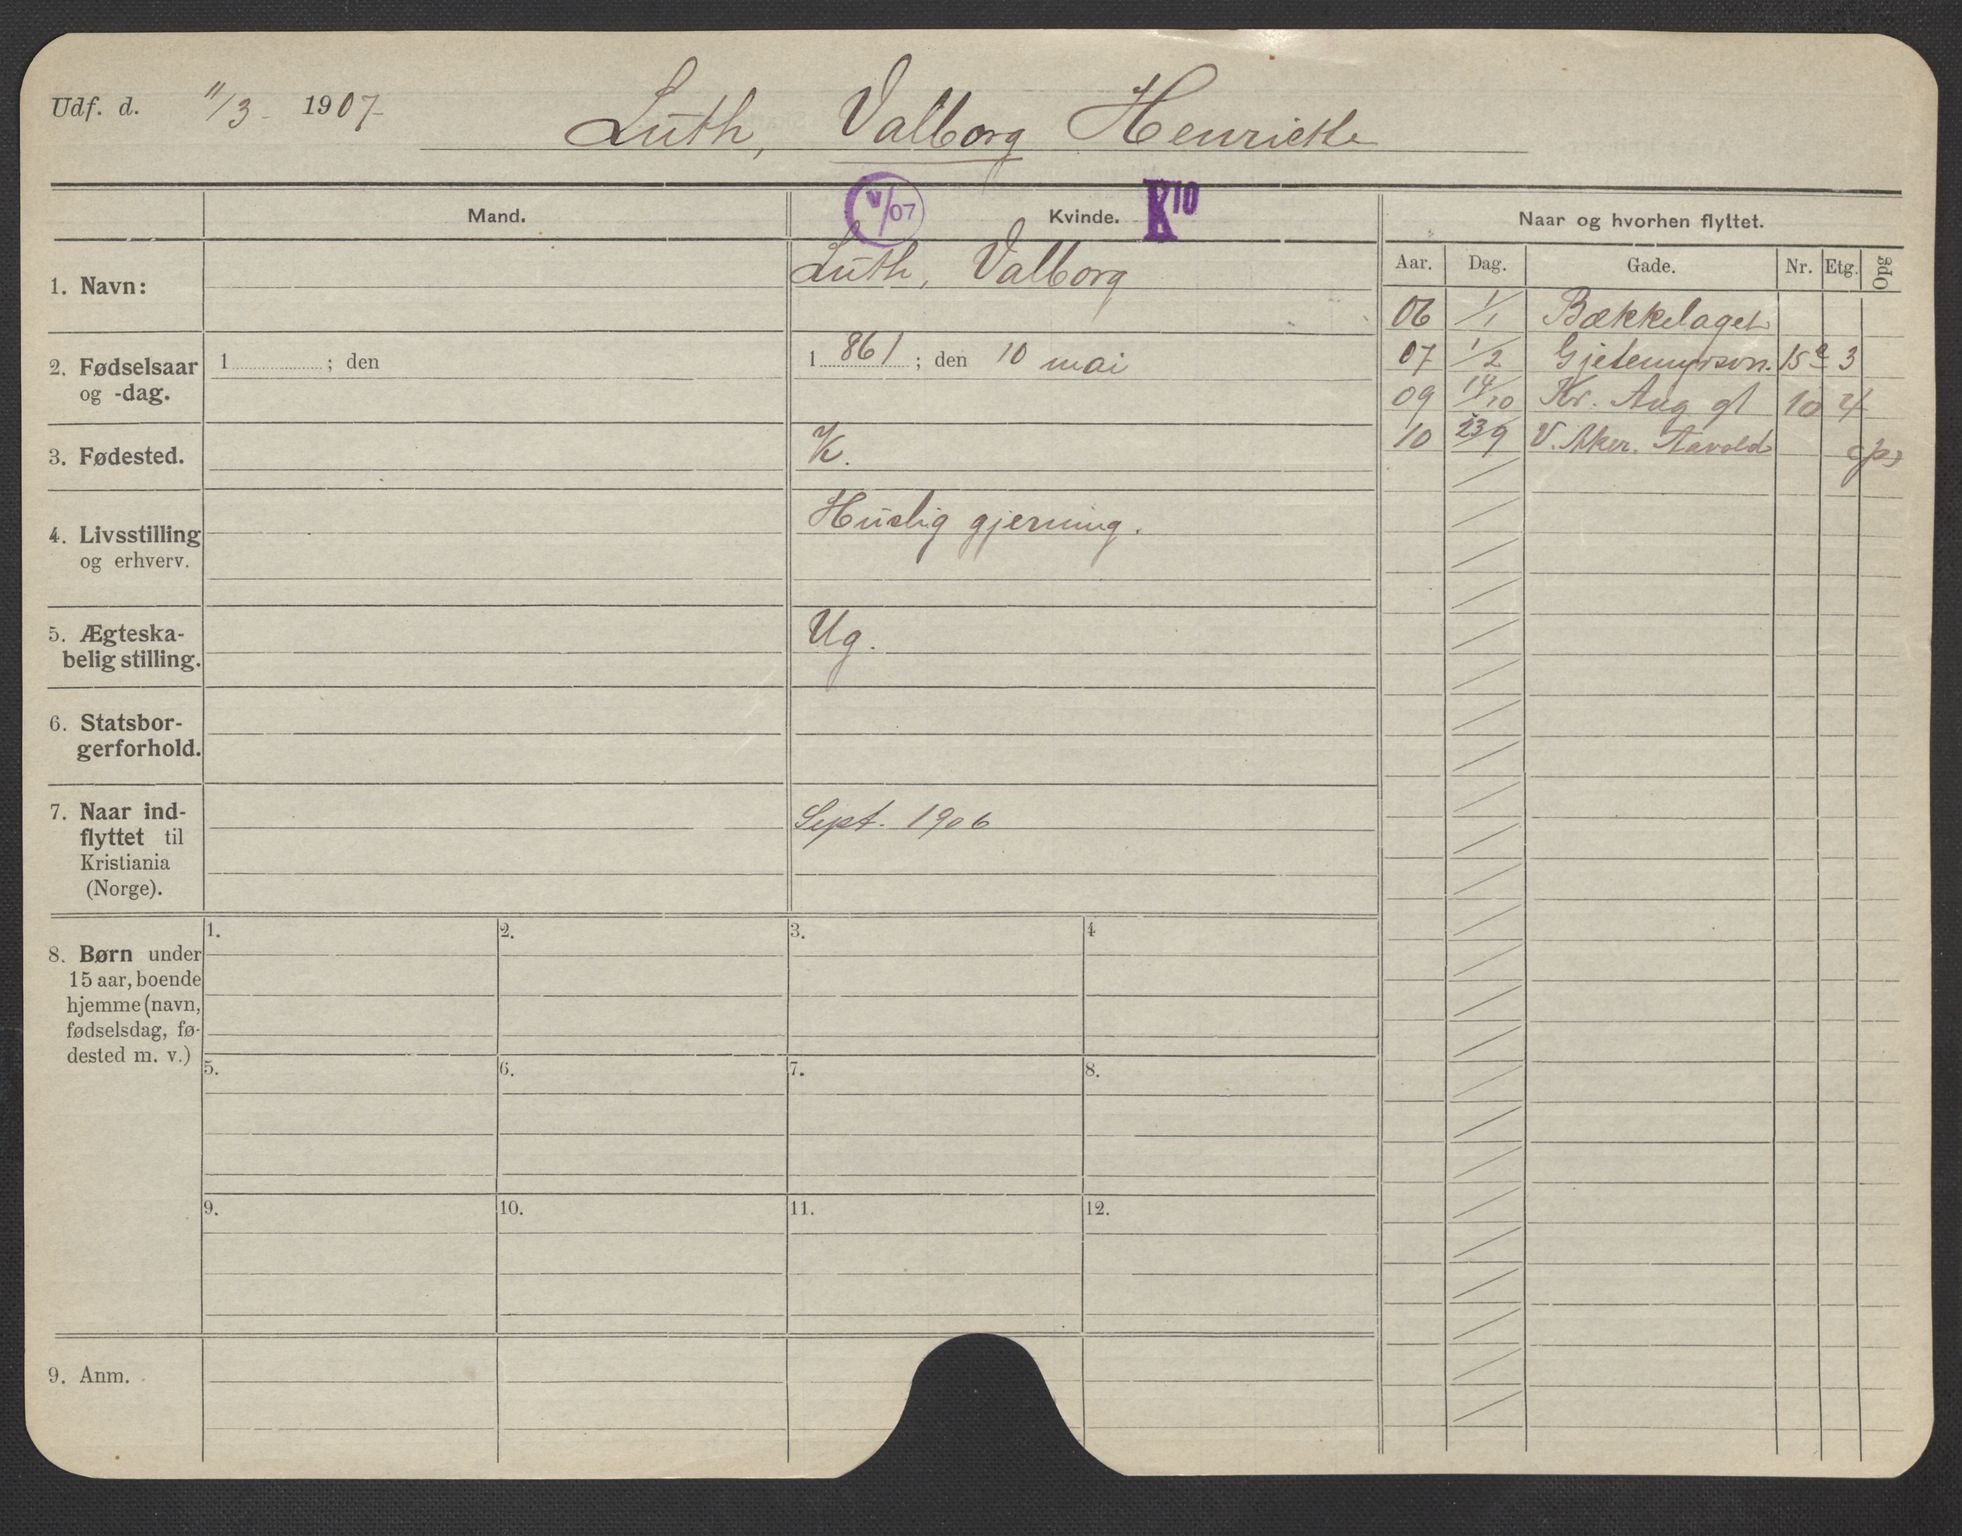 Udf. d. 11/3 - 1907-
Luth, Valborg Henriette
Mand.
V/07
Kvinde.
K10
Naar og hvorhen flyttet.
Aar. Dag. Gade. Nr. Etg. Opg
1. Navn:
Luth, Valborg
06 1/1 Bækkelaget
2. Fødselsaar og -dag.
1 ; den
1 861 ; den 10 mai
07 1/2 Gjetemyrsvn. 15a 3
09 14/10 Kr. Aug gt 10 4
3. Fødested.
K.
10 23/9 V. Aker. Aavold
4. Livsstilling og erhverv.
Huslig gjerning.
5. Ægteska-
belig stilling.
Ug.
6. Statsbor-
gerforhold.
7. Naar ind-
flyttet til
Kristiania
(Norge).
Sept. 1906
8. Børn under
15 aar, boende
hjemme (navn,
fødselsdag, fø-
dested m. v.)
1. 2. 3. 4
5. 6. 7. 8.
9. 10. 11. 12.
9. Anm.